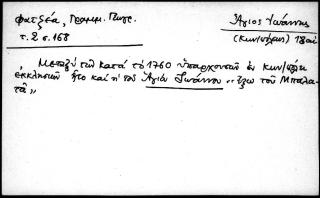 Φατζέα, Γραμμ. Γεωγρ.
τ. 2 σ. 168
Ἅγιος Ἰωάννης
(Κων/πόλεως) 18 αἰ
„ Μεταξύ τῶν κατά τό 1760 ὑπαρχουσῶν ἐν Κων/πόλει
ἐκκλησιῶν ἦτο καί ἡ τοῦ Ἁγίου Ἰωάννου „ ἔξω τοῦ Μπαλα-
τᾶ „